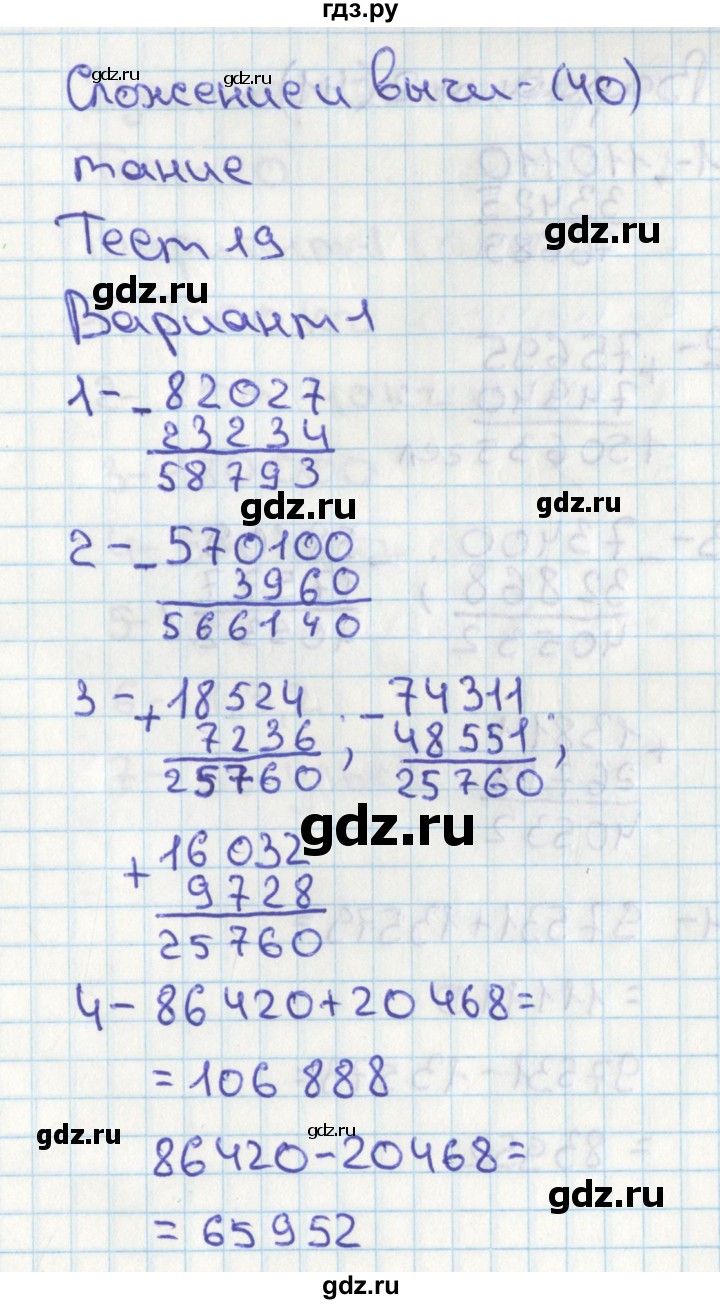 гдз.ру
gdz.ru gdz.ru
Сложение и вычи- (40)
тание
Тест 19
gdz.ru
gdz.ru
Вариант 1
1 - - 82027
23234
58793
gdz.ru gdz.ru
2 - - 570100
3960
566140
3 - + 18524 ; - 74311 ;
7236 48551
25760 25760
gdz.ru
+ 16 032
9728
25760
4 - 86 420 + 20 468 =
= 106 888
gdz.ru gdz.ru
86420 - 20468 =
gdz.ru
= 65 952
gdz.ru